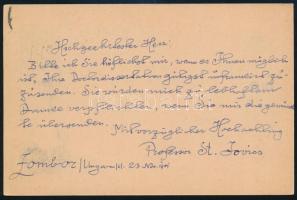 Hochgeehrtester Herr:
Bitte ich Sie höflichst mir, wenn es Ihnen möglich
ist, Ihre gütigst
zusenden. Sie würden mich zu lebhaftem
Danke verpflichten, wenn Sie mir die
übersenden.
Mit vorzüglicher Hochachtung
Professor St. Jovics
Zombor/Ungarn/d. 23